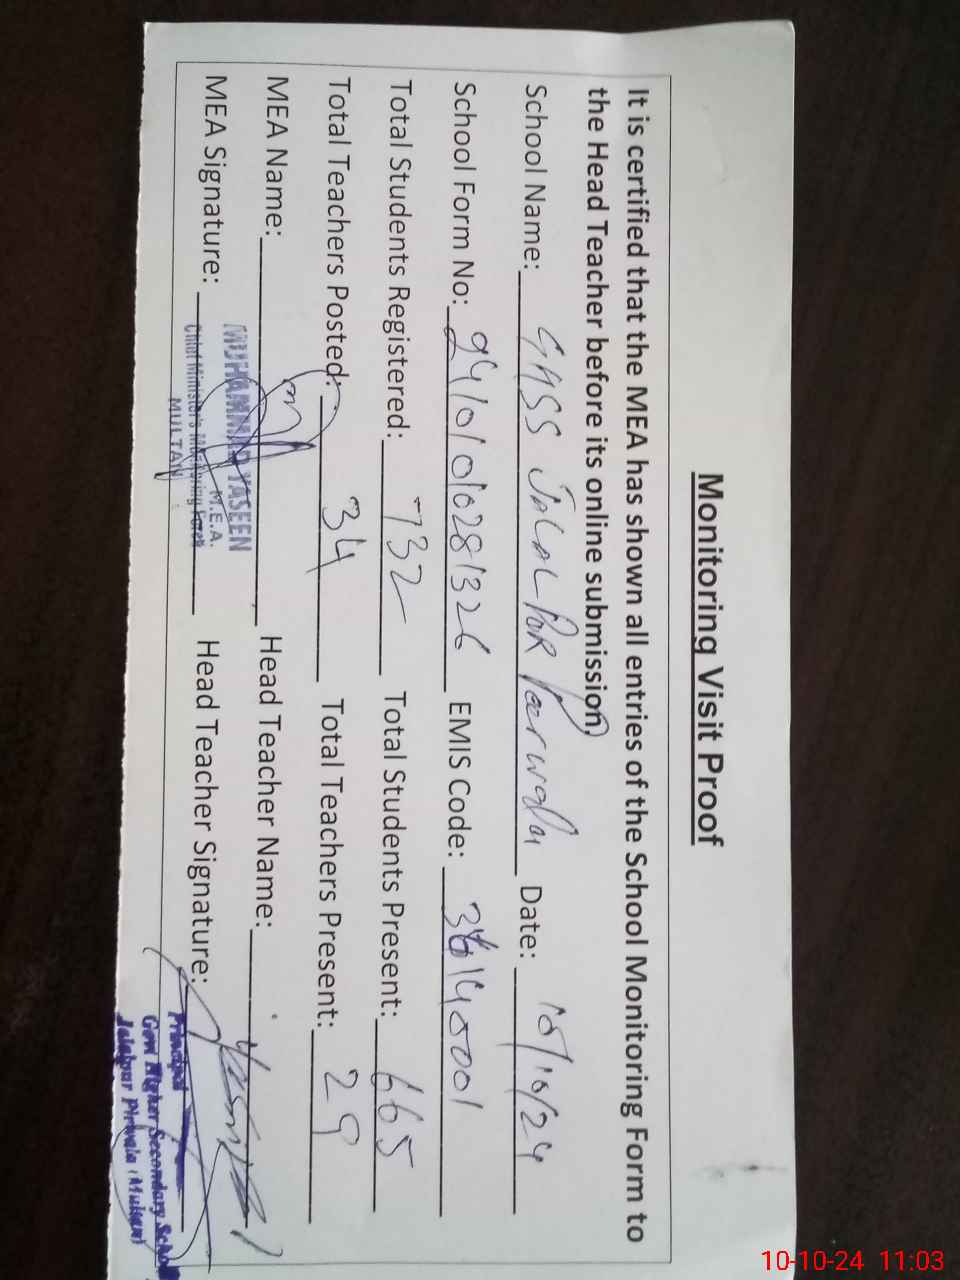 Monitoring Visit Proof
It is certified that the MEA has shown all entries of the School Monitoring Form to
the Head Teacher before its online submission.
School Name: GHSS JALAL PUR Peerwala Date: 10/10/24
School Form No: 24101010281326 EMIS Code: 36140001
Total Students Registered: 732 Total Students Present: 665
Total Teachers Posted: 34 Total Teachers Present: 29
MEA Name: Head Teacher Name:
MUHAMMAD YASEEN
M.E.A.
MEA Signature: Head Teacher Signature:
Chief Minister's Monitoring Force
MULTAN
Principal
Govt Higher Secondary School
Jalalpur Pirwala (Multan)
10-10-24 11:03